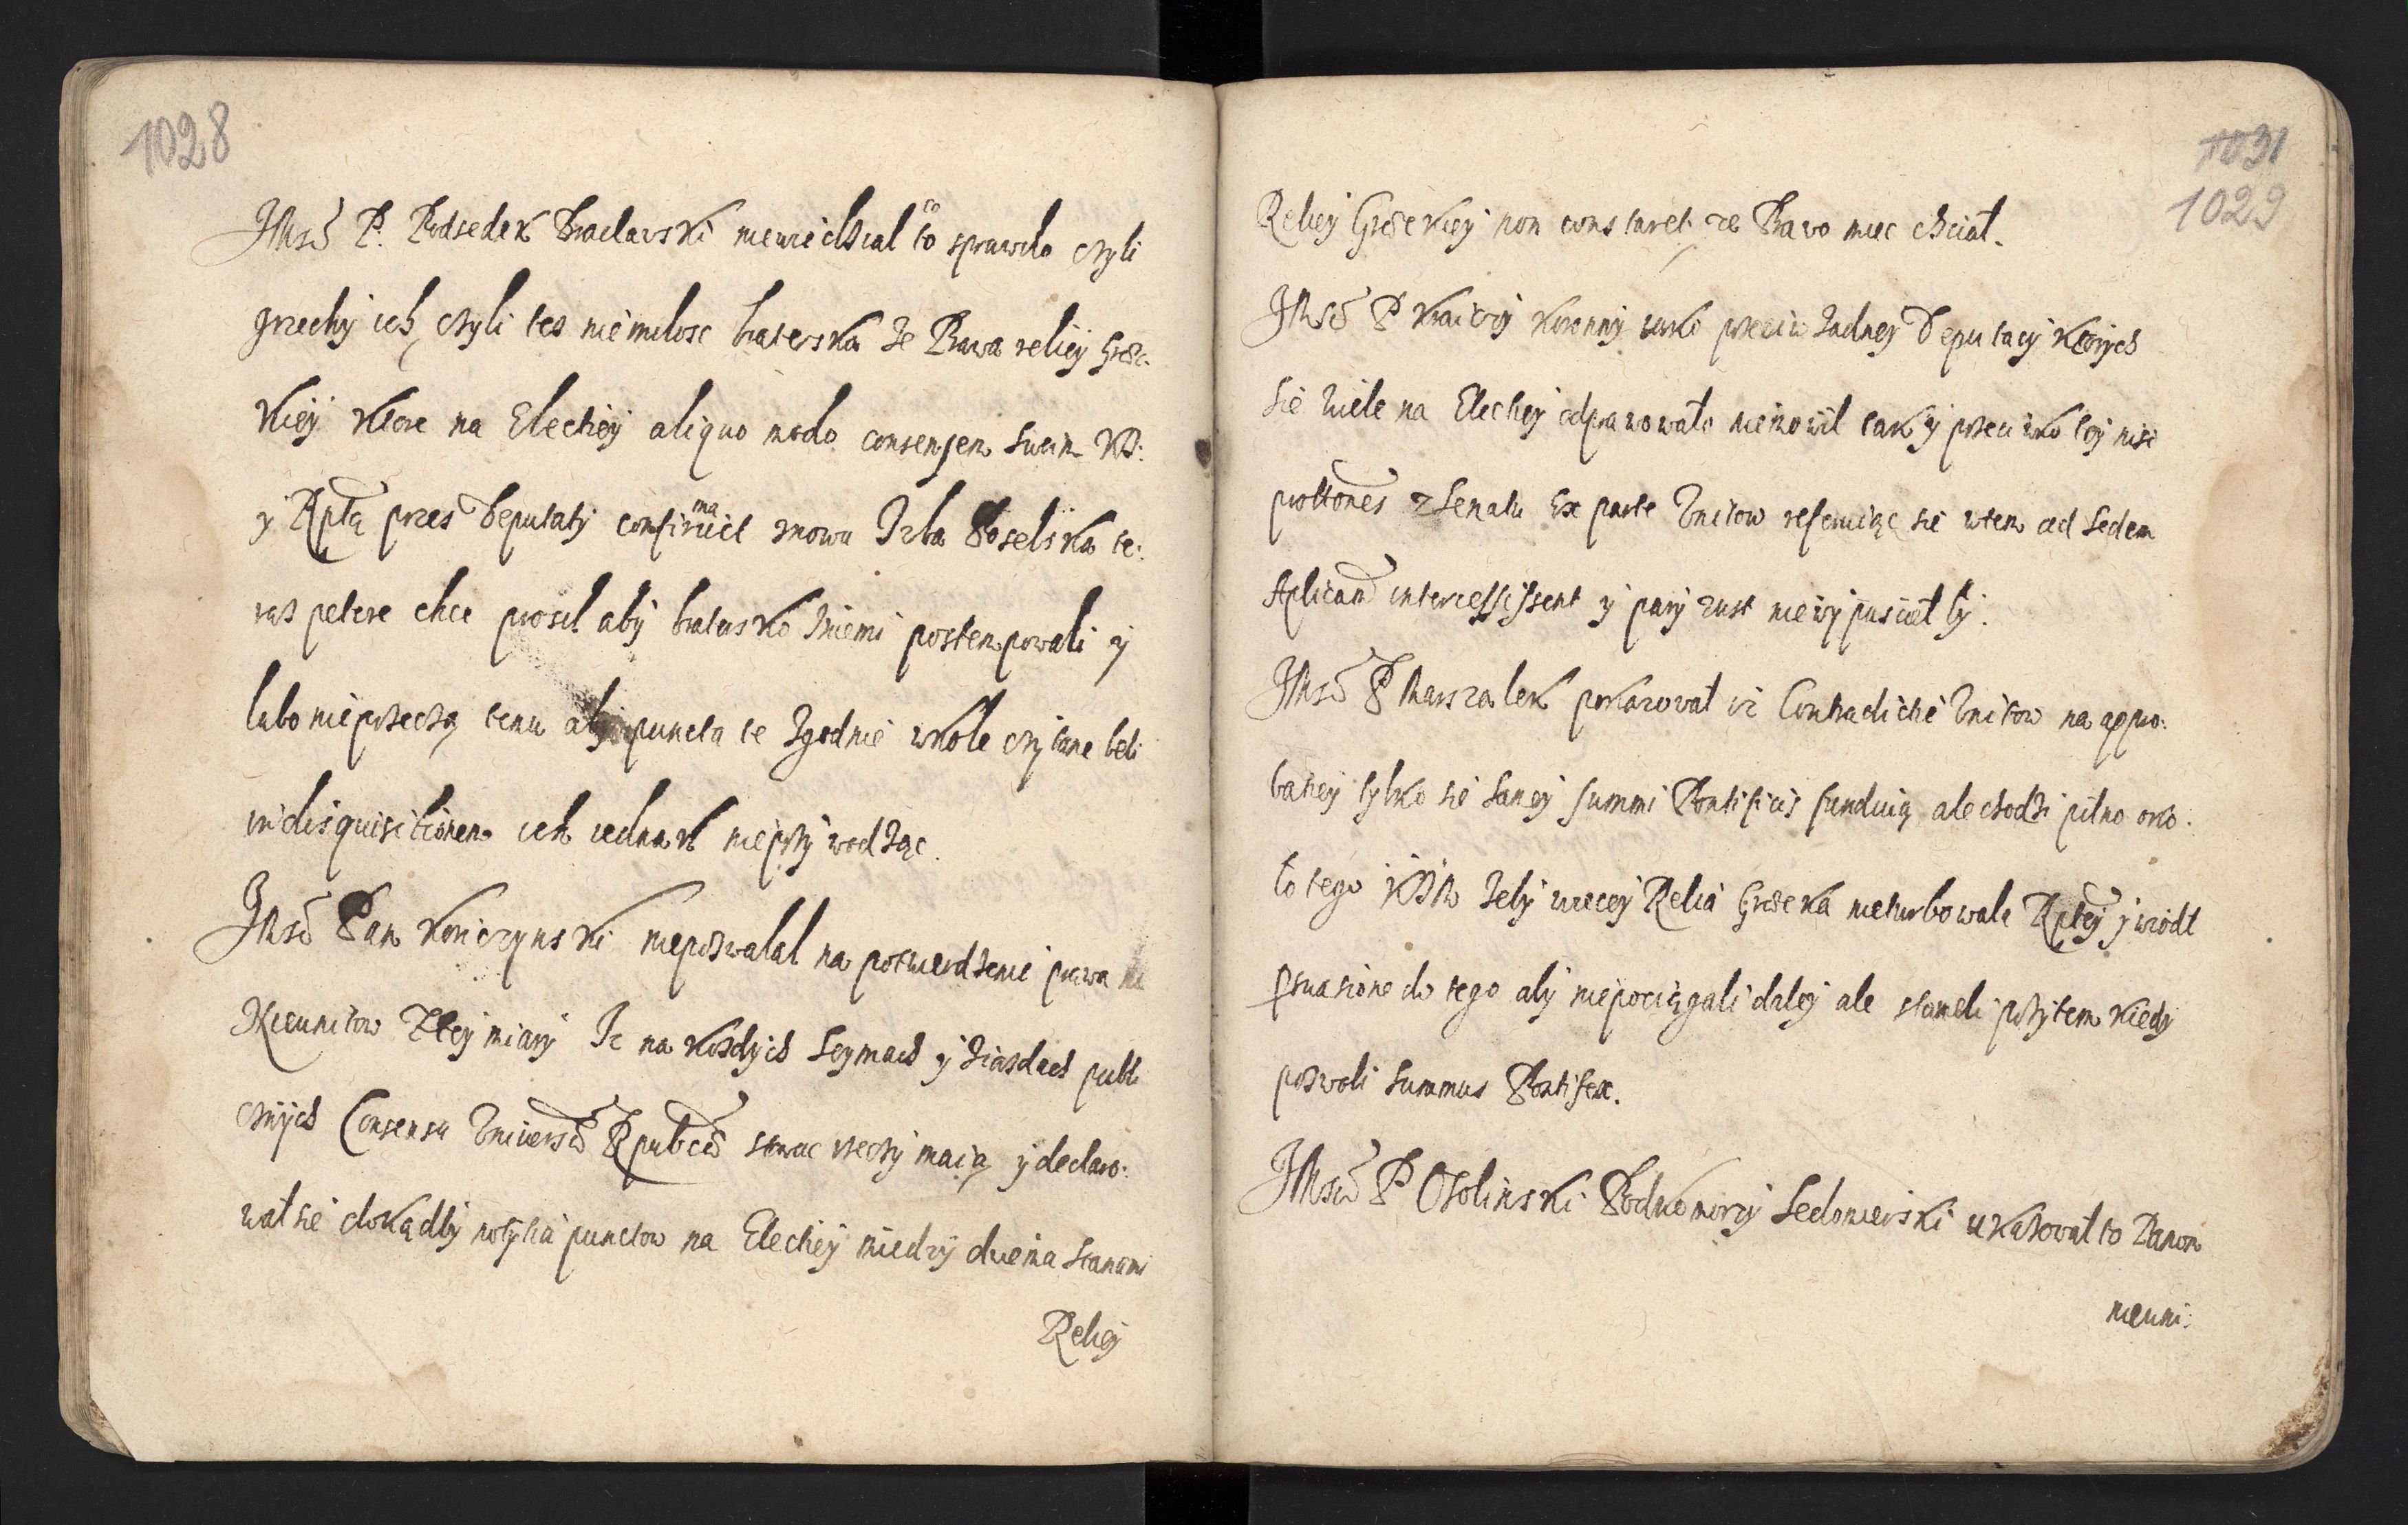 1028
JMsć P. Podsedek Braclawski niewiedział co to sprawiło czyli
grzechy ich, czyli tes niemilosc braterska że Prawa reliiey Grec-
kiey które na Elekciey aliquo modo consensem swem KJ:
y Rptą przes Deputaty confirmuiet znowu Izba Poselska te:
ras petere chce prosił aby bratersko zniemi postempowali y
lubo nieprzeczą temu aby puncta te zgodnie wkole czytane beli
in disquisitionem ich iednak nieprzywodząc.
JMsć Pan Koniczynski niepozwalał na potwierdzenie prawa
Nieunitow Z tey miary Ze na kozdych Seymach y ziazdach publi
cznych Consensu Universae Rpublcae stawac rzeczy maią y declaro:
wał sie dokądby no punctow na Elekciey miedzy dwiema stanami
Reliey
1031
1029
Reliey Greckiey non constaret ze Prawo miec chciał.
JMsć P Kraiczy Koronny iako przeciw zadney Deputacy ktorych
sie wiele na Elekciey odprawowało niemowił tak y przeciwko tey nisi
protōnes z Senatu Ex parte Unitow referuiąc sie wtem ad Sedem
Aplicam intercessissent y pary z ust niewypusciłby.
JMsć P Marszalek pokazował iz Contradictie Unitow na appro:
batiey tylko sie samey summi Pontificis funduią ale chodzi pilno oko:
ło tego KJM zeby wiecey Relia Grecka nieturbowała Rptey y wiodł
persuasione do tego aby niepociągali daley ale staneli przytem kiedy
pozwoli Summus Pontifex.
JMsć P Osolinski Podkomorzy Sedomierski ukazował to Panom
nieuni: